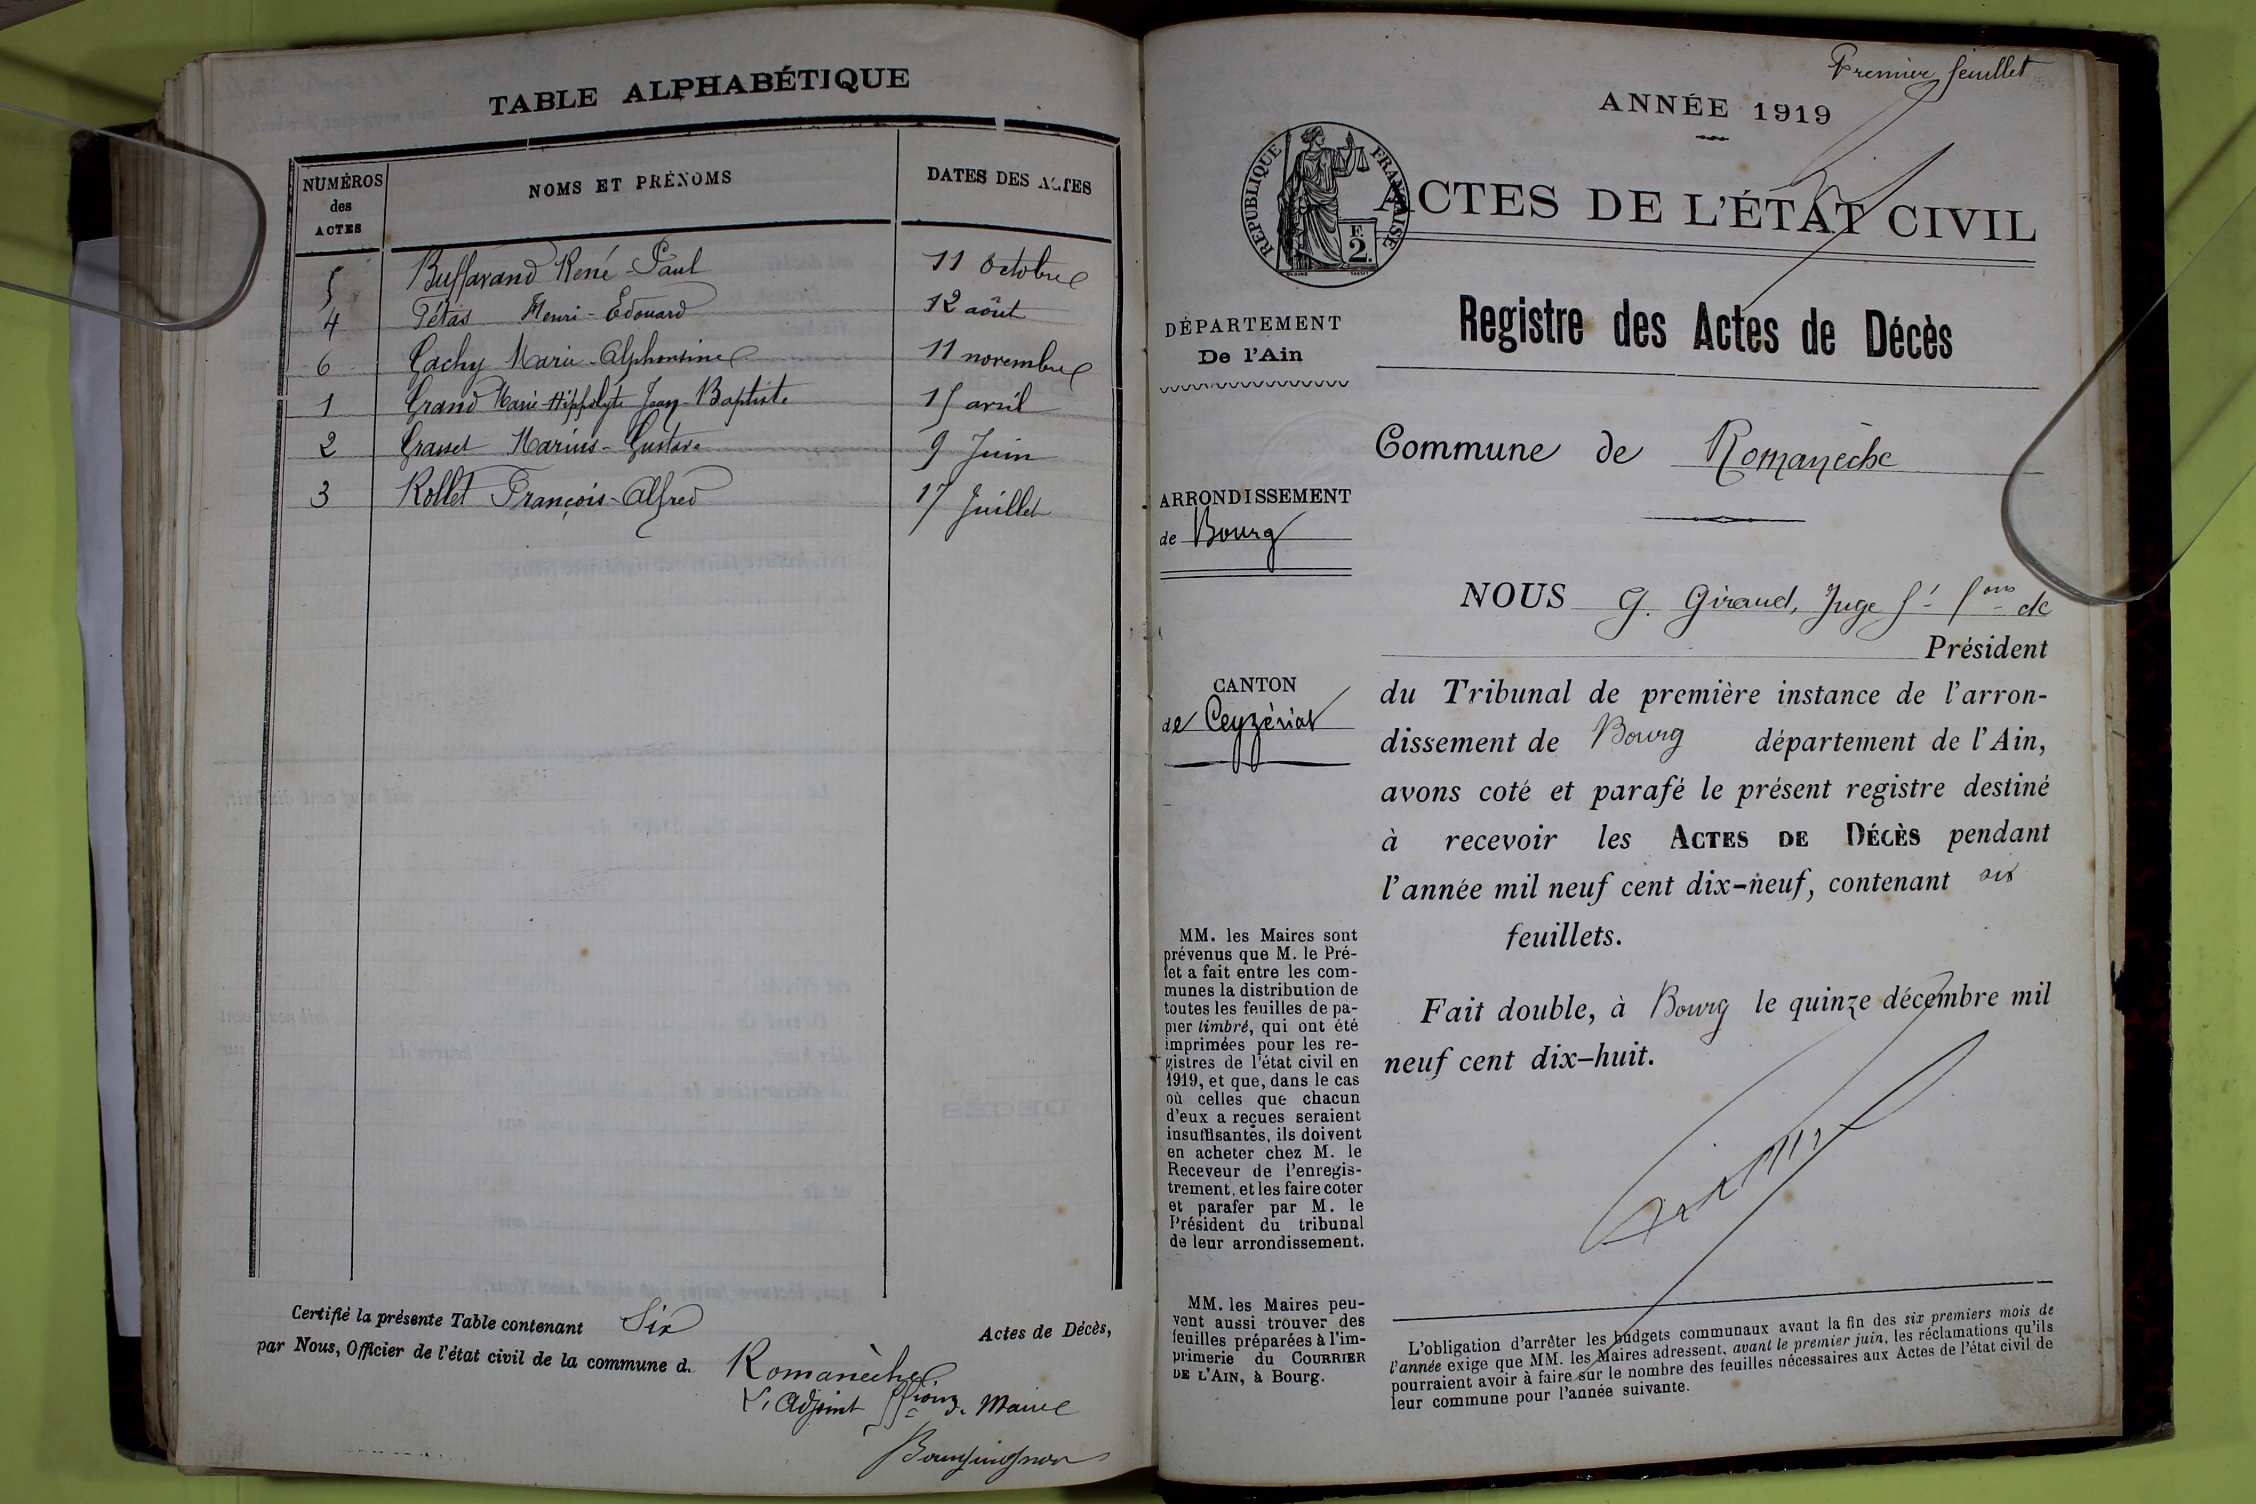 TABLE ALPHABÉTIQUE
NUMÉROS des ACTES
NOMS ET PRÉNOMS
DATES DES ACTES
5 Buffavand René-Paul 11 Octobre
4 Fétas Henri-Edouard 12 août
6 Gachy Marie-Alphonsine 11 novembre
1 Grand Marie-Hippolyte Jean-Baptiste 15 avril
2 Grasset Marius-Gustave 9 Juin
3 Rollet François-Alfred 17 Juillet
Certifié la présente Table contenant Six Actes de Décès,
par Nous, Officier de l'état civil de la commune d. Romanèche
L'Adjoint ffions de Maire
Bourguignon
Premier feuillet
ANNÉE 1919
RÉPUBLIQUE FRANÇAISE
E
2.
ACTES DE L'ÉTAT CIVIL
Registre des Actes de Décès
DÉPARTEMENT
De l'Ain
Commune de Romanèche
ARRONDISSEMENT
de Bourg
CANTON
de Ceyzériat
NOUS G. Giraud, Juge ft fons de
Président
du Tribunal de première instance de l'arron-
dissement de Bourg département de l'Ain,
avons coté et parafé le présent registre destiné
à recevoir les ACTES DE DÉCÈS pendant
l'année mil neuf cent dix-neuf, contenant six
feuillets.
Fait double, à Bourg le quinze décembre mil
neuf cent dix-huit.
MM. les Maires sont
prévenus que M. le Pré-
fet a fait entre les com-
munes la distribution de
toutes les feuilles de pa-
pier timbré, qui ont été
imprimées pour les re-
gistres de l'état civil en
1919, et que, dans le cas
où celles que chacun
d'eux a reçues seraient
insuffisantes, ils doivent
en acheter chez M. le
Receveur de l'enregis-
trement, et les faire coter
et parafer par M. le
Président du tribunal
de leur arrondissement.
MM. les Maires peu-
vent aussi trouver des
feuilles préparées à l'im-
primerie du COURRIER
DE L'AIN, à Bourg.
L'obligation d'arrêter les budgets communaux avant la fin des six premiers mois de
l'année exige que MM. les Maires adressent, avant le premier juin, les réclamations qu'ils
pourraient avoir à faire sur le nombre des feuilles nécessaires aux Actes de l'état civil de
leur commune pour l'année suivante.